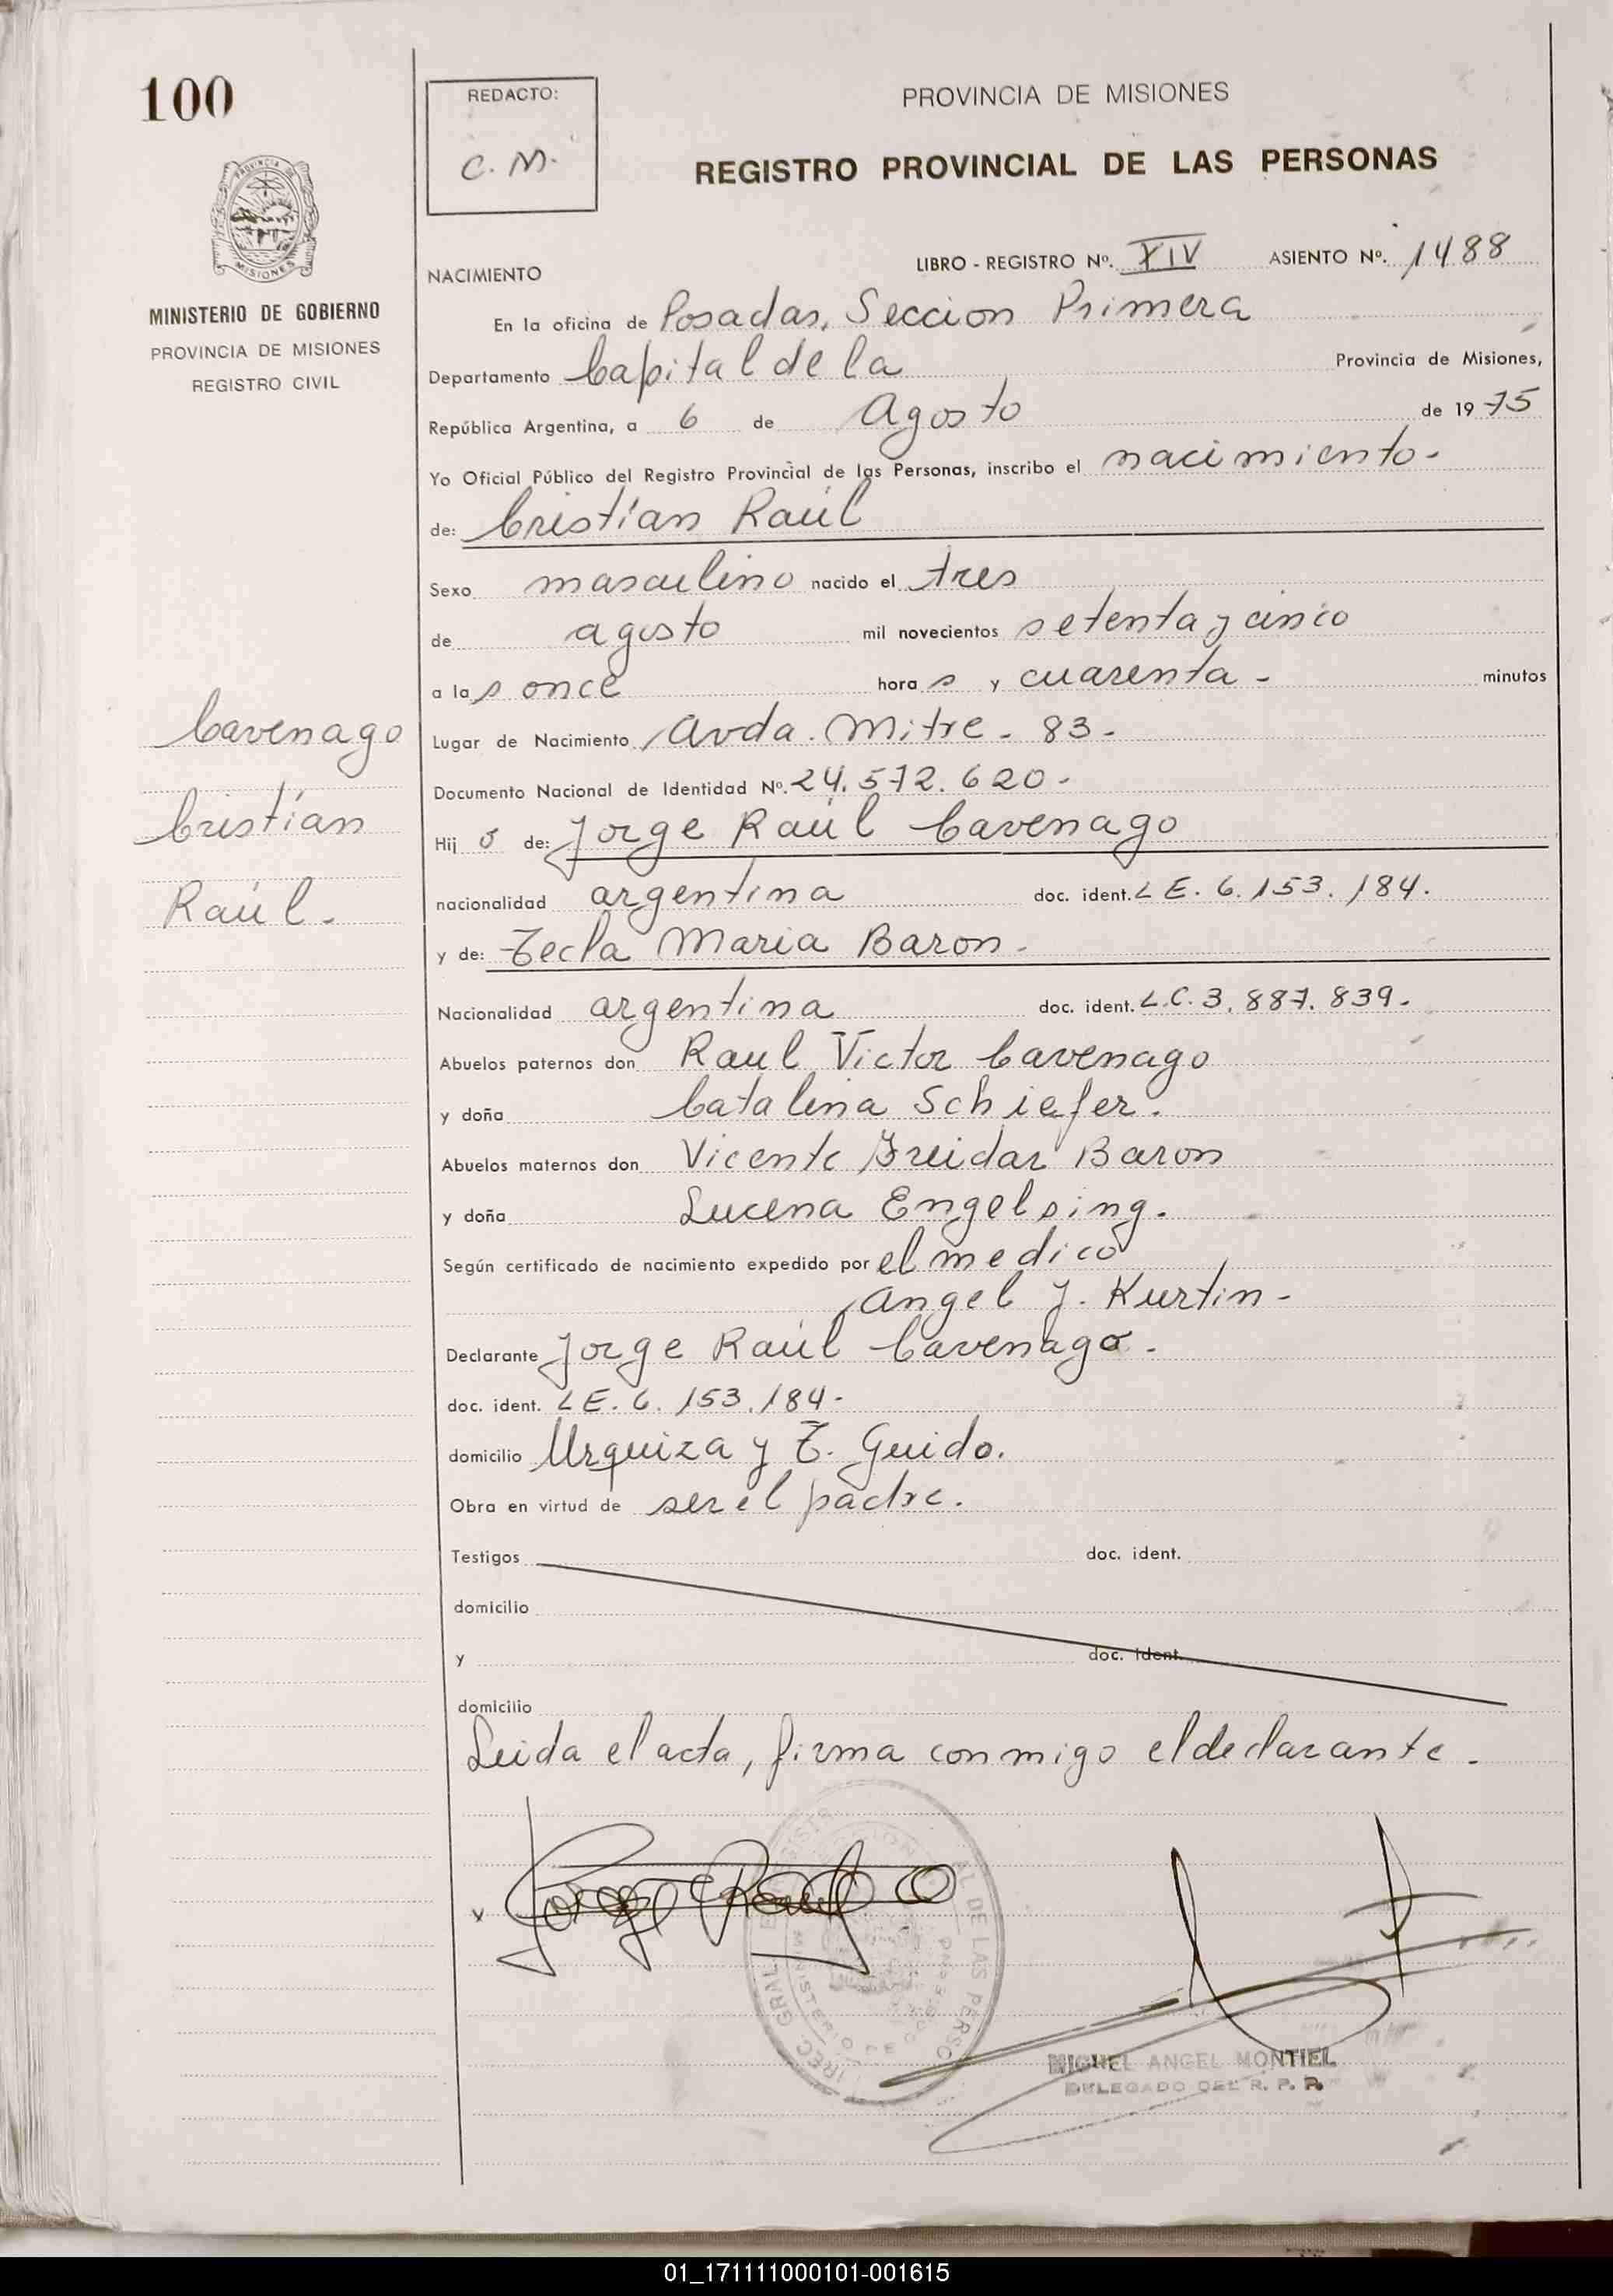 100
REDACTO:
C. M.
PROVINCIA DE MISIONES
REGISTRO PROVINCIAL DE LAS PERSONAS
PROVINCIA DE
MISIONES
MINISTERIO DE GOBIERNO
PROVINCIA DE MISIONES
REGISTRO CIVIL
LIBRO - REGISTRO Nº. XIV ASIENTO Nº. 1488
NACIMIENTO
En la oficina de Posadas, Seccion Primera
Departamento Capital de la Provincia de Misiones,
República Argentina, a 6 de Agosto de 1975
Yo Oficial Público del Registro Provincial de las Personas, inscribo el nacimiento-
de: Cristían Raúl
Sexo masculino nacido el tres
de agosto mil novecientos setenta y cinco
a las once horas y cuarenta - minutos
Cavenago
Cristían
Raúl.
Lugar de Nacimiento Avda. Mitre - 83 -
Documento Nacional de Identidad Nº. 24.572.620-
Hijo de: Jorge Raúl Cavenago
nacionalidad argentina doc. ident. LE. 6.153.184.
y de: Tecla Maria Baron.
Nacionalidad argentina doc. ident. L.C. 3.887.839.
Abuelos paternos don Raul Victor Cavenago
y doña Catalina Schiefer.
Abuelos maternos don Vicente Baron
y doña Lucena Engelsing.
Según certificado de nacimiento expedido por el medico
Angel J. Kurtin-
Declarante Jorge Raúl Cavenago.
doc. ident. LE. 6.153.184-
domicilio Urquiza y T. Guido.
Obra en virtud de ser el padre.
Testigos doc. ident.
domicilio
y doc. ident.
domicilio
Leida el acta, firma conmigo el declarante.
x Jorge Raul
MINISTERIO DE GOBIERNO
MIGUEL ANGEL MONTIEL
DELEGADO DEL R. P. P.
01_171111000101-001615